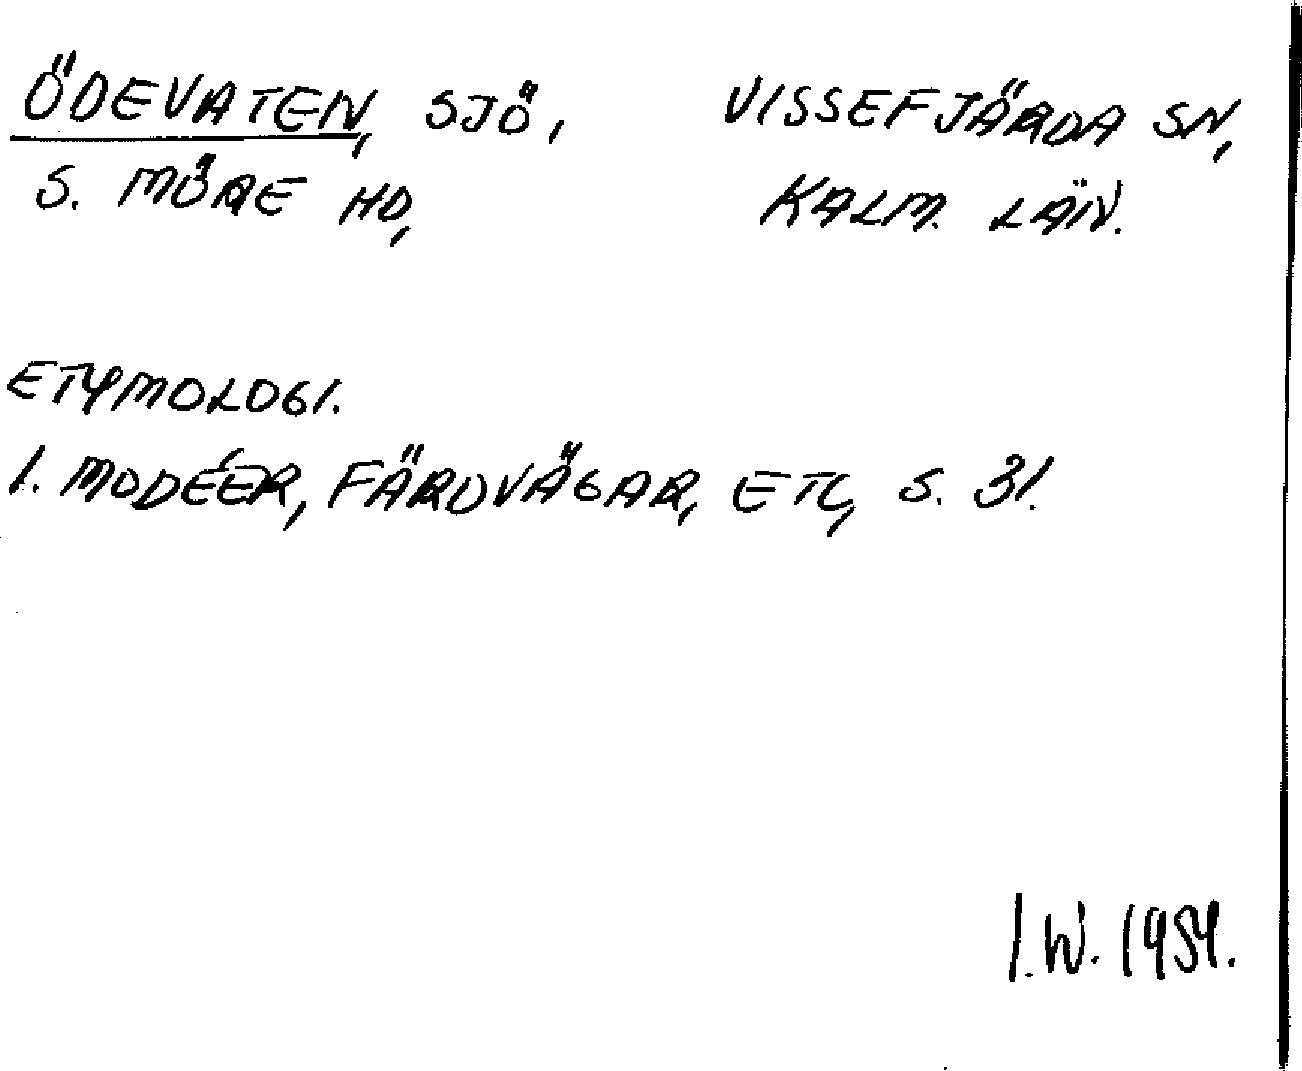 ÖDEVATEN, SJÖ, VISSEFJÄRDA SN,
S. MÖRE HD, KALM. LÄN.
ETYMOLOGI.
I. MODÉER, FÄRDVÄGAR, ETC, S. 31.
I.W. 1954.